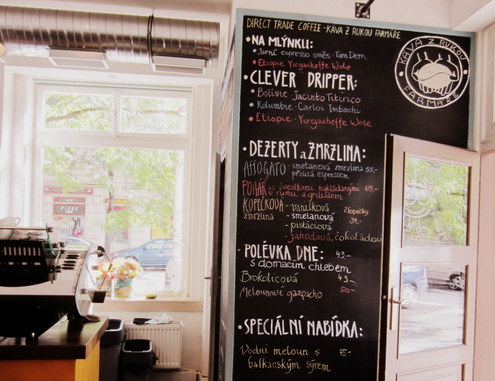 DIRECT TRADE COFFEE - KÁVA Z RUKOU FARMÁŘE
• NA MLÝNKU:
• Jarní espresso směs - Yum Dem,
• Etiopie Yirgacheffe Wote
• CLEVER DRIPPER:
• Bolívie Jacinto Titirico
• Kolumbie - Carlos Imbachi
• Etiopie - Yirgacheffe Wote
KÁVA Z RUKOU
FARMÁŘE
• DEZERTY a ZMRZLINA:
AFFOGATO - smetanová zmrzlina 55,-
přelitá espressem
POHÁR se švestkami nakládanými 69,-
v rumu a griliášem
KOPEČKOVÁ - vanilková 2 kopečky
zmrzlina - smetanová 34,-
- pistáciová
- jahodová, čokoládou
• POLÉVKA DNE: 49,-
s domácím chlebem
Brokolicová 49,-
Melounové gazpacho 50,-
• SPECIÁLNÍ NABÍDKA:
Vodní meloun s
balkánským sýrem